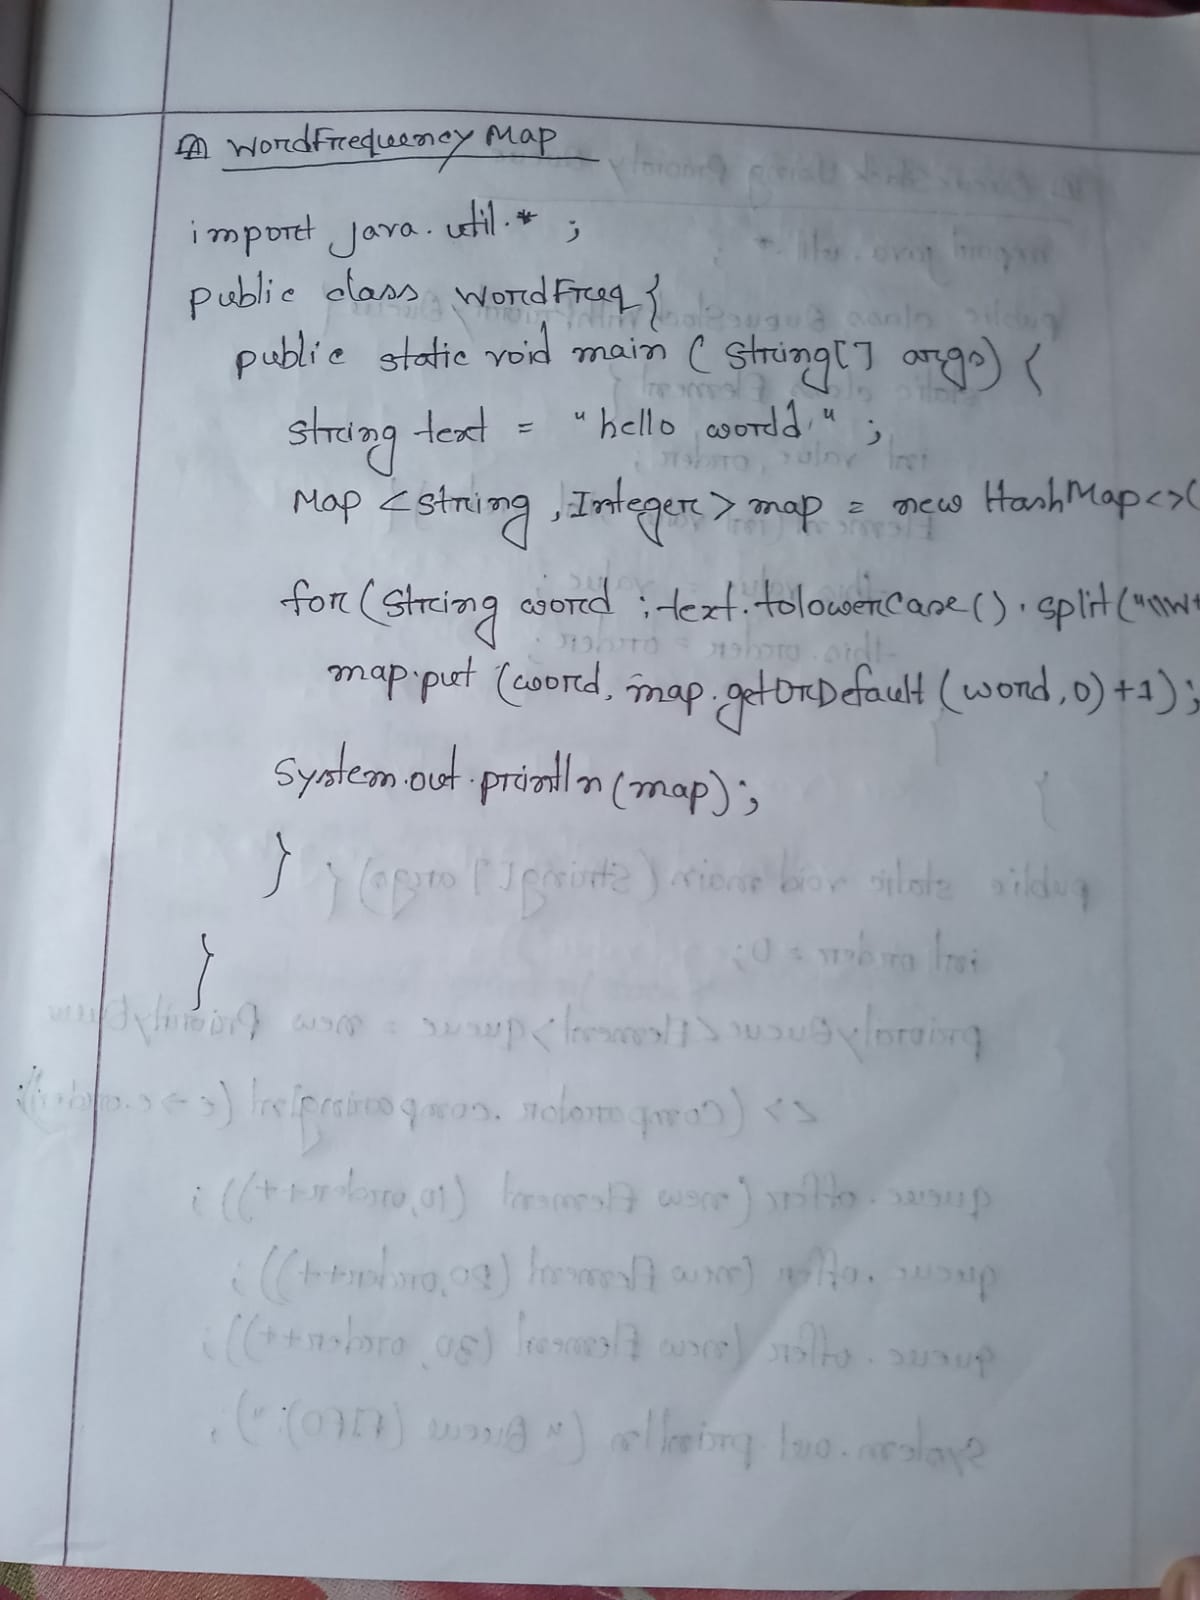 WordFrequency Map
import java.util.* ;
public class WordFreq{
public static void main ( String[] args) {
String text = "hello world" ;
Map <String, Integer> map = new HashMap<>(
for(String word : text.tolowerCase().split("\\W+
map.put (word, map.getOrDefault (word, 0) +1);
System.out.println(map);
}
}